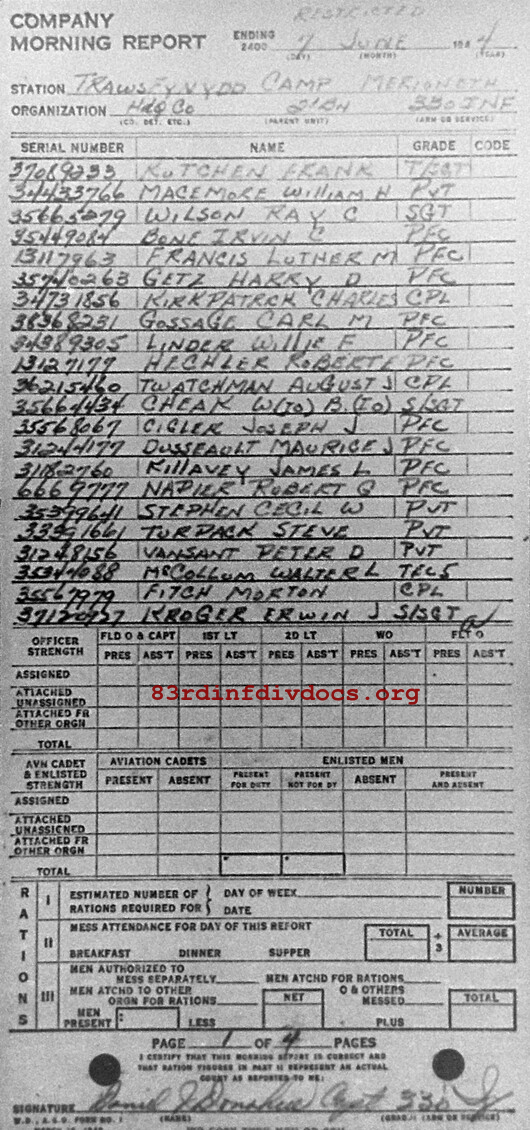 RESTRICTED
COMPANY
MORNING REPORT ENDING 2400 7 JUNE 1944
(DAY) (MONTH) (YEAR)
STATION TRAWSFYNYDD CAMP MERIONETH
ORGANIZATION HdQ Co 2d BN 330 INF
(CO. DET. ETC.) (PARENT UNIT) (ARM OR SERVICE)
SERIAL NUMBER NAME GRADE CODE
37089233 KUTCHEN FRANK T/SGT
34433766 MACEMORE WILLIAM H PVT
35665279 WILSON RAY C SGT
35449084 BONE IRVIN C PFC
13117963 FRANCIS LUTHER M PFC
35740263 GETZ HARRY D PFC
34731856 KIRKPATRCK CHARLES CPL
38368231 GOSSAGE CARL M PFC
34389305 LINDER WILLIE F PFC
13127177 HECHLER ROBERT E PFC
36215460 TWATCHMAN AUGUST J CPL
35664434 CHEAK W(IO) B.(IO) S/SGT
35568067 CIGLER JOSEPH J PFC
31244177 DUSSEAULT MAURICE J PFC
31182760 KILLAVEY JAMES L PFC
6669777 NAPIER ROBERT G PFC
35399641 STEPHEN CECIL W PVT
33391661 TURPACK STEVE PVT
31248156 VANSANT PETER D PVT
35344088 McCOLLUM WALTER L TEC5
35567979 FITCH MORTON CPL
37120927 KROGER ERWIN J S/SGT
OFFICER STRENGTH FLD O & CAPT 1ST LT 2D LT WO FLT O
PRES ABS'T PRES ABS'T PRES ABS'T PRES ABS'T PRES ABS'T
ASSIGNED
ATTACHED UNASSIGNED
83rdinfdivdocs.org
ATTACHED FR OTHER ORGN
TOTAL
AVN CADET & ENLISTED STRENGTH AVIATION CADETS ENLISTED MEN
PRESENT ABSENT PRESENT FOR DUTY PRESENT NOT FOR DY ABSENT PRESENT AND ABSENT
ASSIGNED
ATTACHED UNASSIGNED
ATTACHED FR OTHER ORGN
TOTAL
RATIONS
I ESTIMATED NUMBER OF RATIONS REQUIRED FOR { DAY OF WEEK NUMBER
DATE
II MESS ATTENDANCE FOR DAY OF THIS REPORT TOTAL ÷ 3 AVERAGE
BREAKFAST DINNER SUPPER
III MEN AUTHORIZED TO MESS SEPARATELY MEN ATCHD FOR RATIONS
MEN ATCHD TO OTHER ORGN FOR RATIONS NET O & OTHERS MESSED TOTAL
MEN PRESENT : LESS PLUS
PAGE 1 OF 4 PAGES
I CERTIFY THAT THIS MORNING REPORT IS CORRECT AND
THAT RATION FIGURES IN PART II REPRESENT AN ACTUAL
COUNT AS REPORTED TO ME:
SIGNATURE Daniel J Donahue Capt 330 Inf
W.D., A.G.O. FORM NO. 1 (NAME) (GRADE) (ARM OR SERVICE)